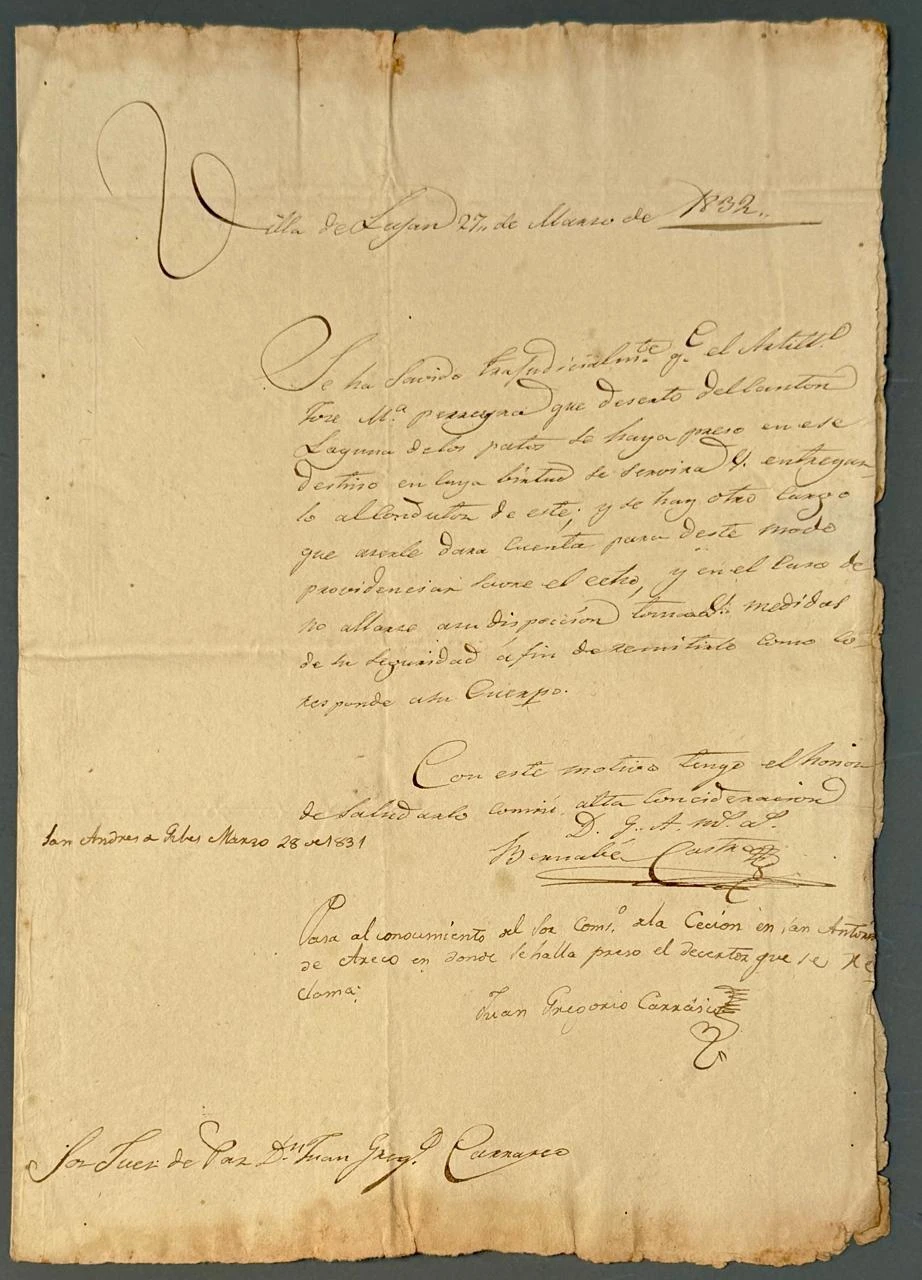 Villa de Lujan 27,, de Marzo de 1832,,
Se ha savido trasJudicialmte qe el Artillo
Jose Ma perreyra que deserto del Canton
Laguna delos patos se haya preso en ese
destino en cuya birtud se servira V. entregar-
lo al Condutor de este; y se hay otro cargo
que aserle dara cuenta para deste modo
providenciar sovre el echo, y en el Caso de
no allarse asu dispocicion tomara V. medidas
de su seguridad á fin de remitirlo como co-
responde asu Cuerpo.
Con este motivo tengo el honor
de Saludarlo con mi alta Concideracion
D. G. A. ms. as.
Bernabé Castro
San Andres de Giles Marzo 28 de 1831
Pasa al conocimiento del Sor Comso. de la Cecion en San Antonio
de Areco en donde se halla preso el decertor que se re
clama.
Juan Gregorio Carrasco
Sor Juez de Paz Dn Juan Grego. Carrasco